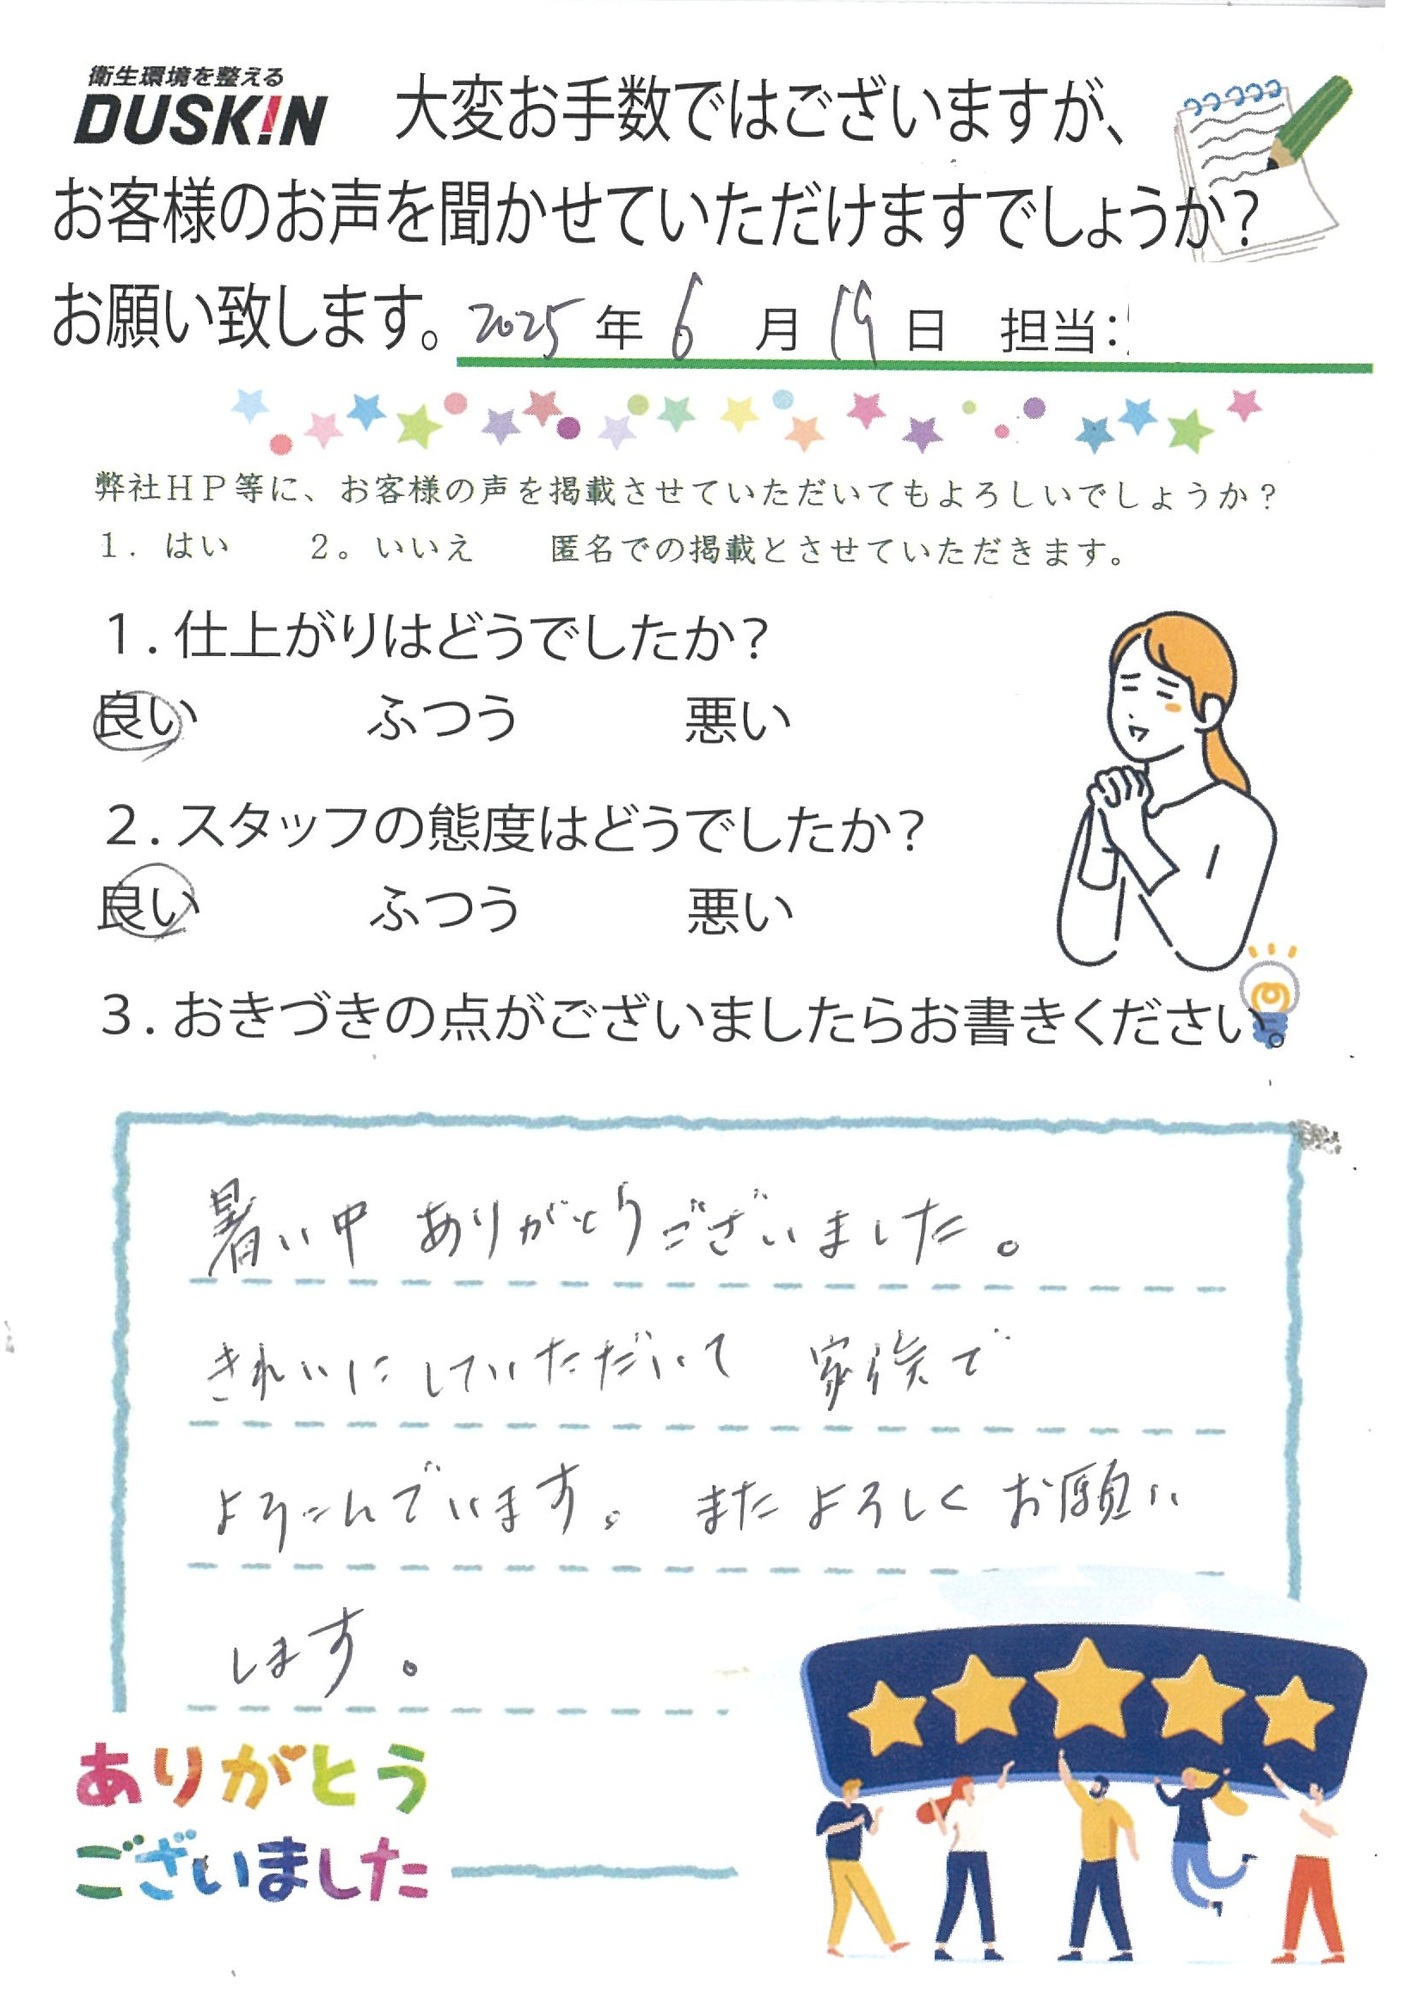 衛生環境を整える
DUSKIN 大変お手数ではございますが、
お客様のお声を聞かせていただけますでしょうか?
お願い致します。2025年6月19日 担当:
弊社HP等に、お客様の声を掲載させていただいてもよろしいでしょうか?
1. はい 2。いいえ 匿名での掲載とさせていただきます。
1.仕上がりはどうでしたか?
良い ふつう 悪い
2.スタッフの態度はどうでしたか?
良い ふつう 悪い
3.おきづきの点がございましたらお書きください。
暑い中 ありがとうございました。
きれいにしていただいて 家族で
よろこんでいます。またよろしくお願い
します。
ありがとう
ございました